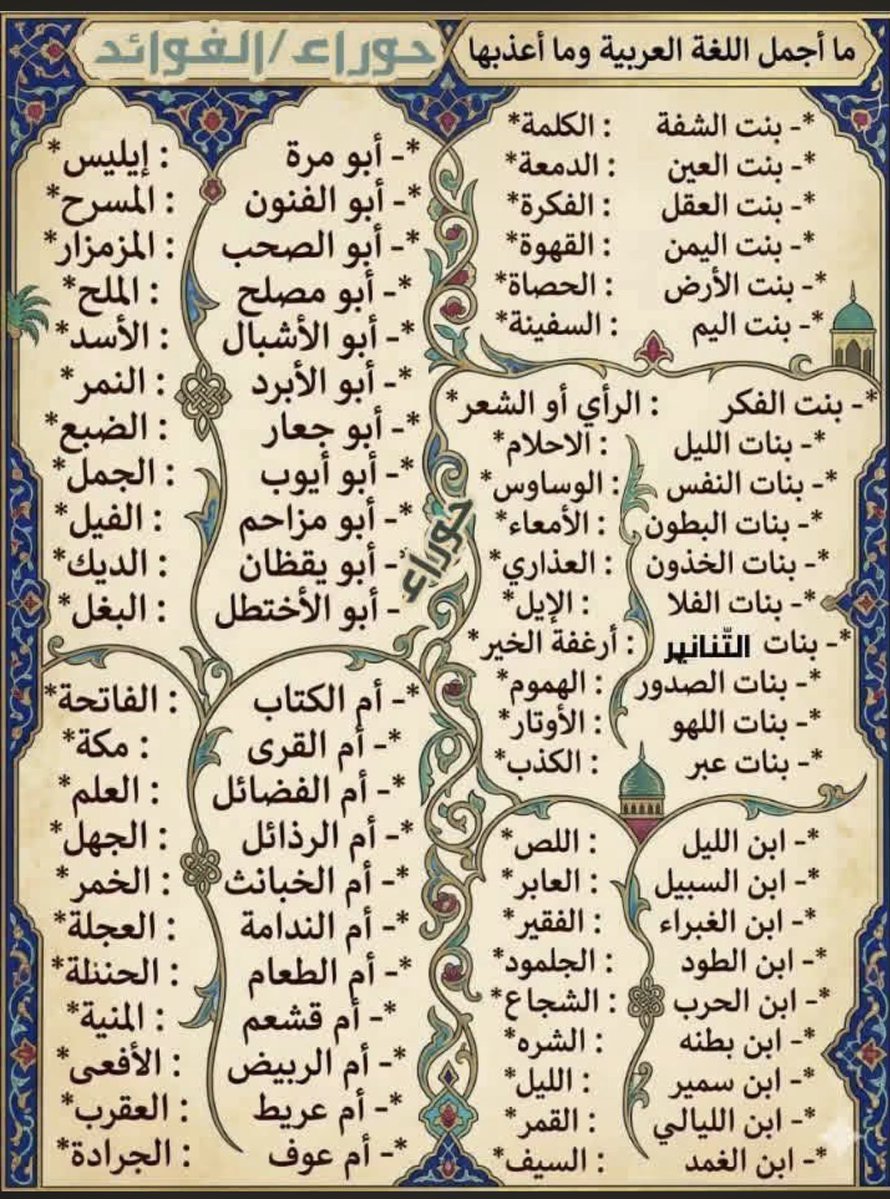 ما أجمل اللغة العربية وما أعذبها
حوراء/الفوائد
*- بنت الشفة : الكلمة*
*- بنت العين : الدمعة*
*- بنت العقل : الفكرة*
*- بنت اليمن : القهوة*
*- بنت الأرض : الحصاة*
*- بنت اليم : السفينة*
*- بنت الفكر : الرأي أو الشعر*
*- بنات الليل : الاحلام*
*- بنات النفس : الوساوس*
*- بنات البطون : الأمعاء*
*- بنات الخذون : العذاري*
*- بنات الفلا : الإيل*
*- بنات التّنانير : أرغفة الخير*
*- بنات الصدور : الهموم*
*- بنات اللهو : الأوتار*
*- بنات عبر : الكذب*
*- ابن الليل : اللص*
*- ابن السبيل : العابر*
*- ابن الغبراء : الفقير*
*- ابن الطود : الجلمود*
*- ابن الحرب : الشجاع*
*- ابن بطنه : الشره*
*- ابن سمير : الليل*
*- ابن الليالي : القمر*
*- ابن الغمد : السيف*
*- أبو مرة : إيليس*
*- أبو الفنون : المسرح*
*- أبو الصحب : المزمزار*
*- أبو مصلح : الملح*
*- أبو الأشبال : الأسد*
*- أبو الأبرد : النمر*
*- أبو جعار : الضبع*
*- أبو أيوب : الجمل*
*- أبو مزاحم : الفيل*
- أبو يقظان : الديك*
- أبو الأختطل : البغل*
حوراء
*- أم الكتاب : الفاتحة*
*- أم القرى : مكة*
*- أم الفضائل : العلم*
*- أم الرذائل : الجهل*
*- أم الخبانث : الخمر*
*- أم الندامة : العجلة*
*- أم الطعام : الحننلة*
*- أم قشعم : المنية*
*- أم الربيض : الأفعى*
*- أم عريط : العقرب*
*- أم عوف : الجرادة*